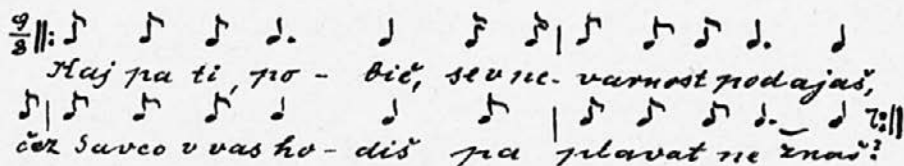 9/8
Kaj pa ti, po - bič, se v ne- varnost podajaš,
čez Savco v vas ho- diš pa plavat ne znaš?